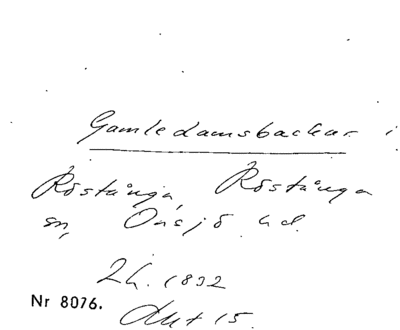 Gamledamsbackar i
Röstånga, Röstånga
sn, Onsjö hd.
2h. 1832
Nr 8076. Akt 15.